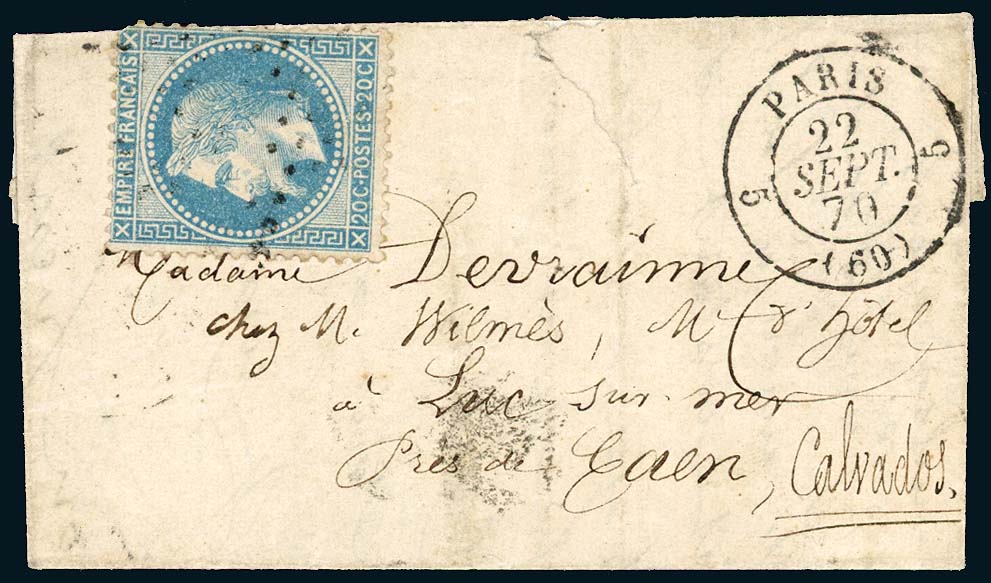 EMPIRE FRANÇAIS
20 C·POSTES·20 C
PARIS
5 5
22
SEPT.
70
(60)
Madame Devrainne
chez M. Wilmès, Me d'hôtel
à Luc sur mer
Près de Caen, Calvados.